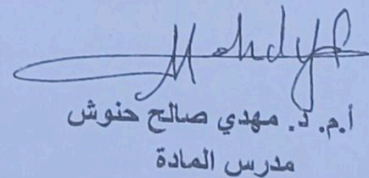 Mahdy
أ.م. د. مهدي صالح حنوش
مدرس المادة